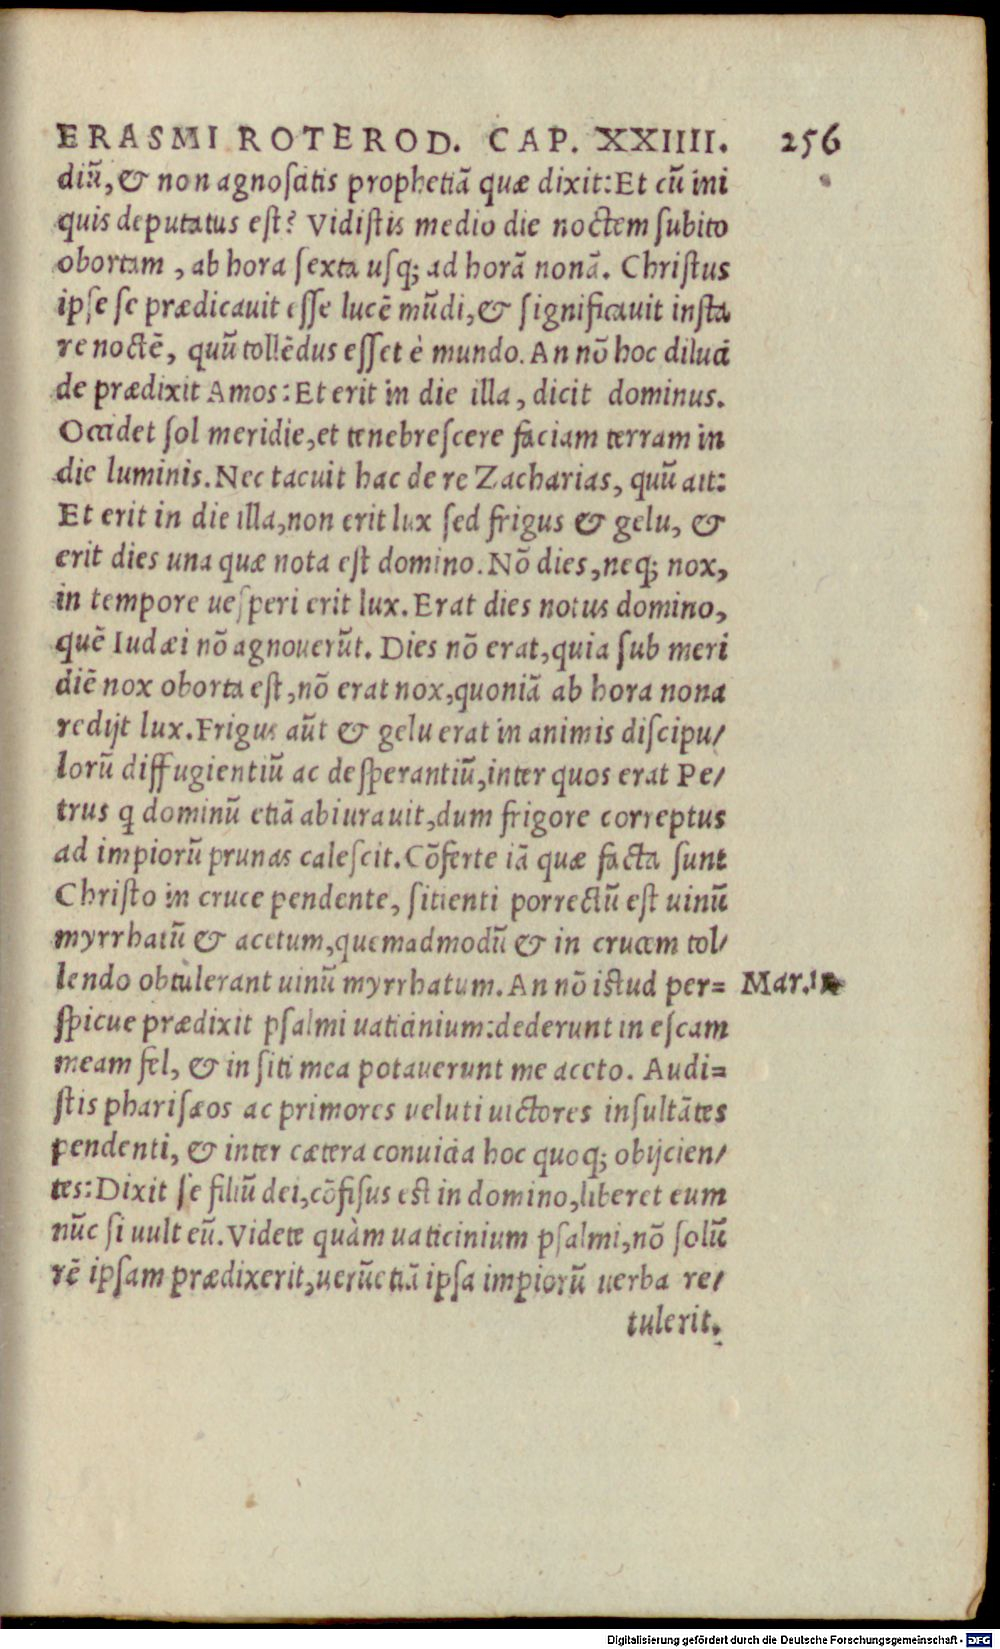 ERASMI ROTEROD. CAP. XXIIII. 256
diũ, & non agnoſcitis prophetiã quæ dixit: Et cũ ini
quis deputatus eſt? Vidiſtis medio die noctem ſubito
obortam, ab hora ſexta uſq; ad horã nonã. Chriſtus
ipſe ſe prædicauit eſſe lucẽ mũdi, & ſignificauit inſta
re noctẽ, quũ tollẽdus eſſet è mundo. An nõ hoc diluci
de prædixit Amos: Et erit in die illa, dicit dominus.
Occidet ſol meridie, et tenebreſcere faciam terram in
die luminis. Nec tacuit hac de re Zacharias, quũ ait:
Et erit in die illa, non erit lux ſed frigus & gelu, &
erit dies una quæ nota eſt domino. Nõ dies, neq; nox,
in tempore ueſperi erit lux. Erat dies notus domino,
quẽ Iudæi nõ agnouerũt. Dies nõ erat, quia ſub meri
diẽ nox oborta eſt, nõ erat nox, quoniã ab hora nona
redijt lux. Frigus aũt & gelu erat in animis diſcipu/
lorũ diffugientiũ ac deſperantiũ, inter quos erat Pe/
trus ꝗ dominũ etiã abiurauit, dum frigore correptus
ad impiorũ prunas caleſcit. Cõferte iã quæ facta ſunt
Chriſto in cruce pendente, ſitienti porrectũ eſt uinũ
myrrhatũ & acetum, quemadmodũ & in crucem tol/
lendo obtulerant uinũ myrrhatum. An nõ iſtud per= Mar.15
ſpicue prædixit pſalmi uaticinium: dederunt in eſcam
meam fel, & in ſiti mea potauerunt me aceto. Audi=
ſtis phariſæos ac primores ueluti uictores inſultãtes
pendenti, & inter cætera conuicia hoc quoq; obijcien/
tes: Dixit ſe filiũ dei, cõfiſus eſt in domino, liberet eum
nũc ſi uult eũ. Videte quàm uaticinium pſalmi, nõ ſolũ
rẽ ipſam prædixerit, uerũetiã ipſa impiorũ uerba re/
tulerit.
Digitalisierung gefördert durch die Deutsche Forschungsgemeinschaft - DFG